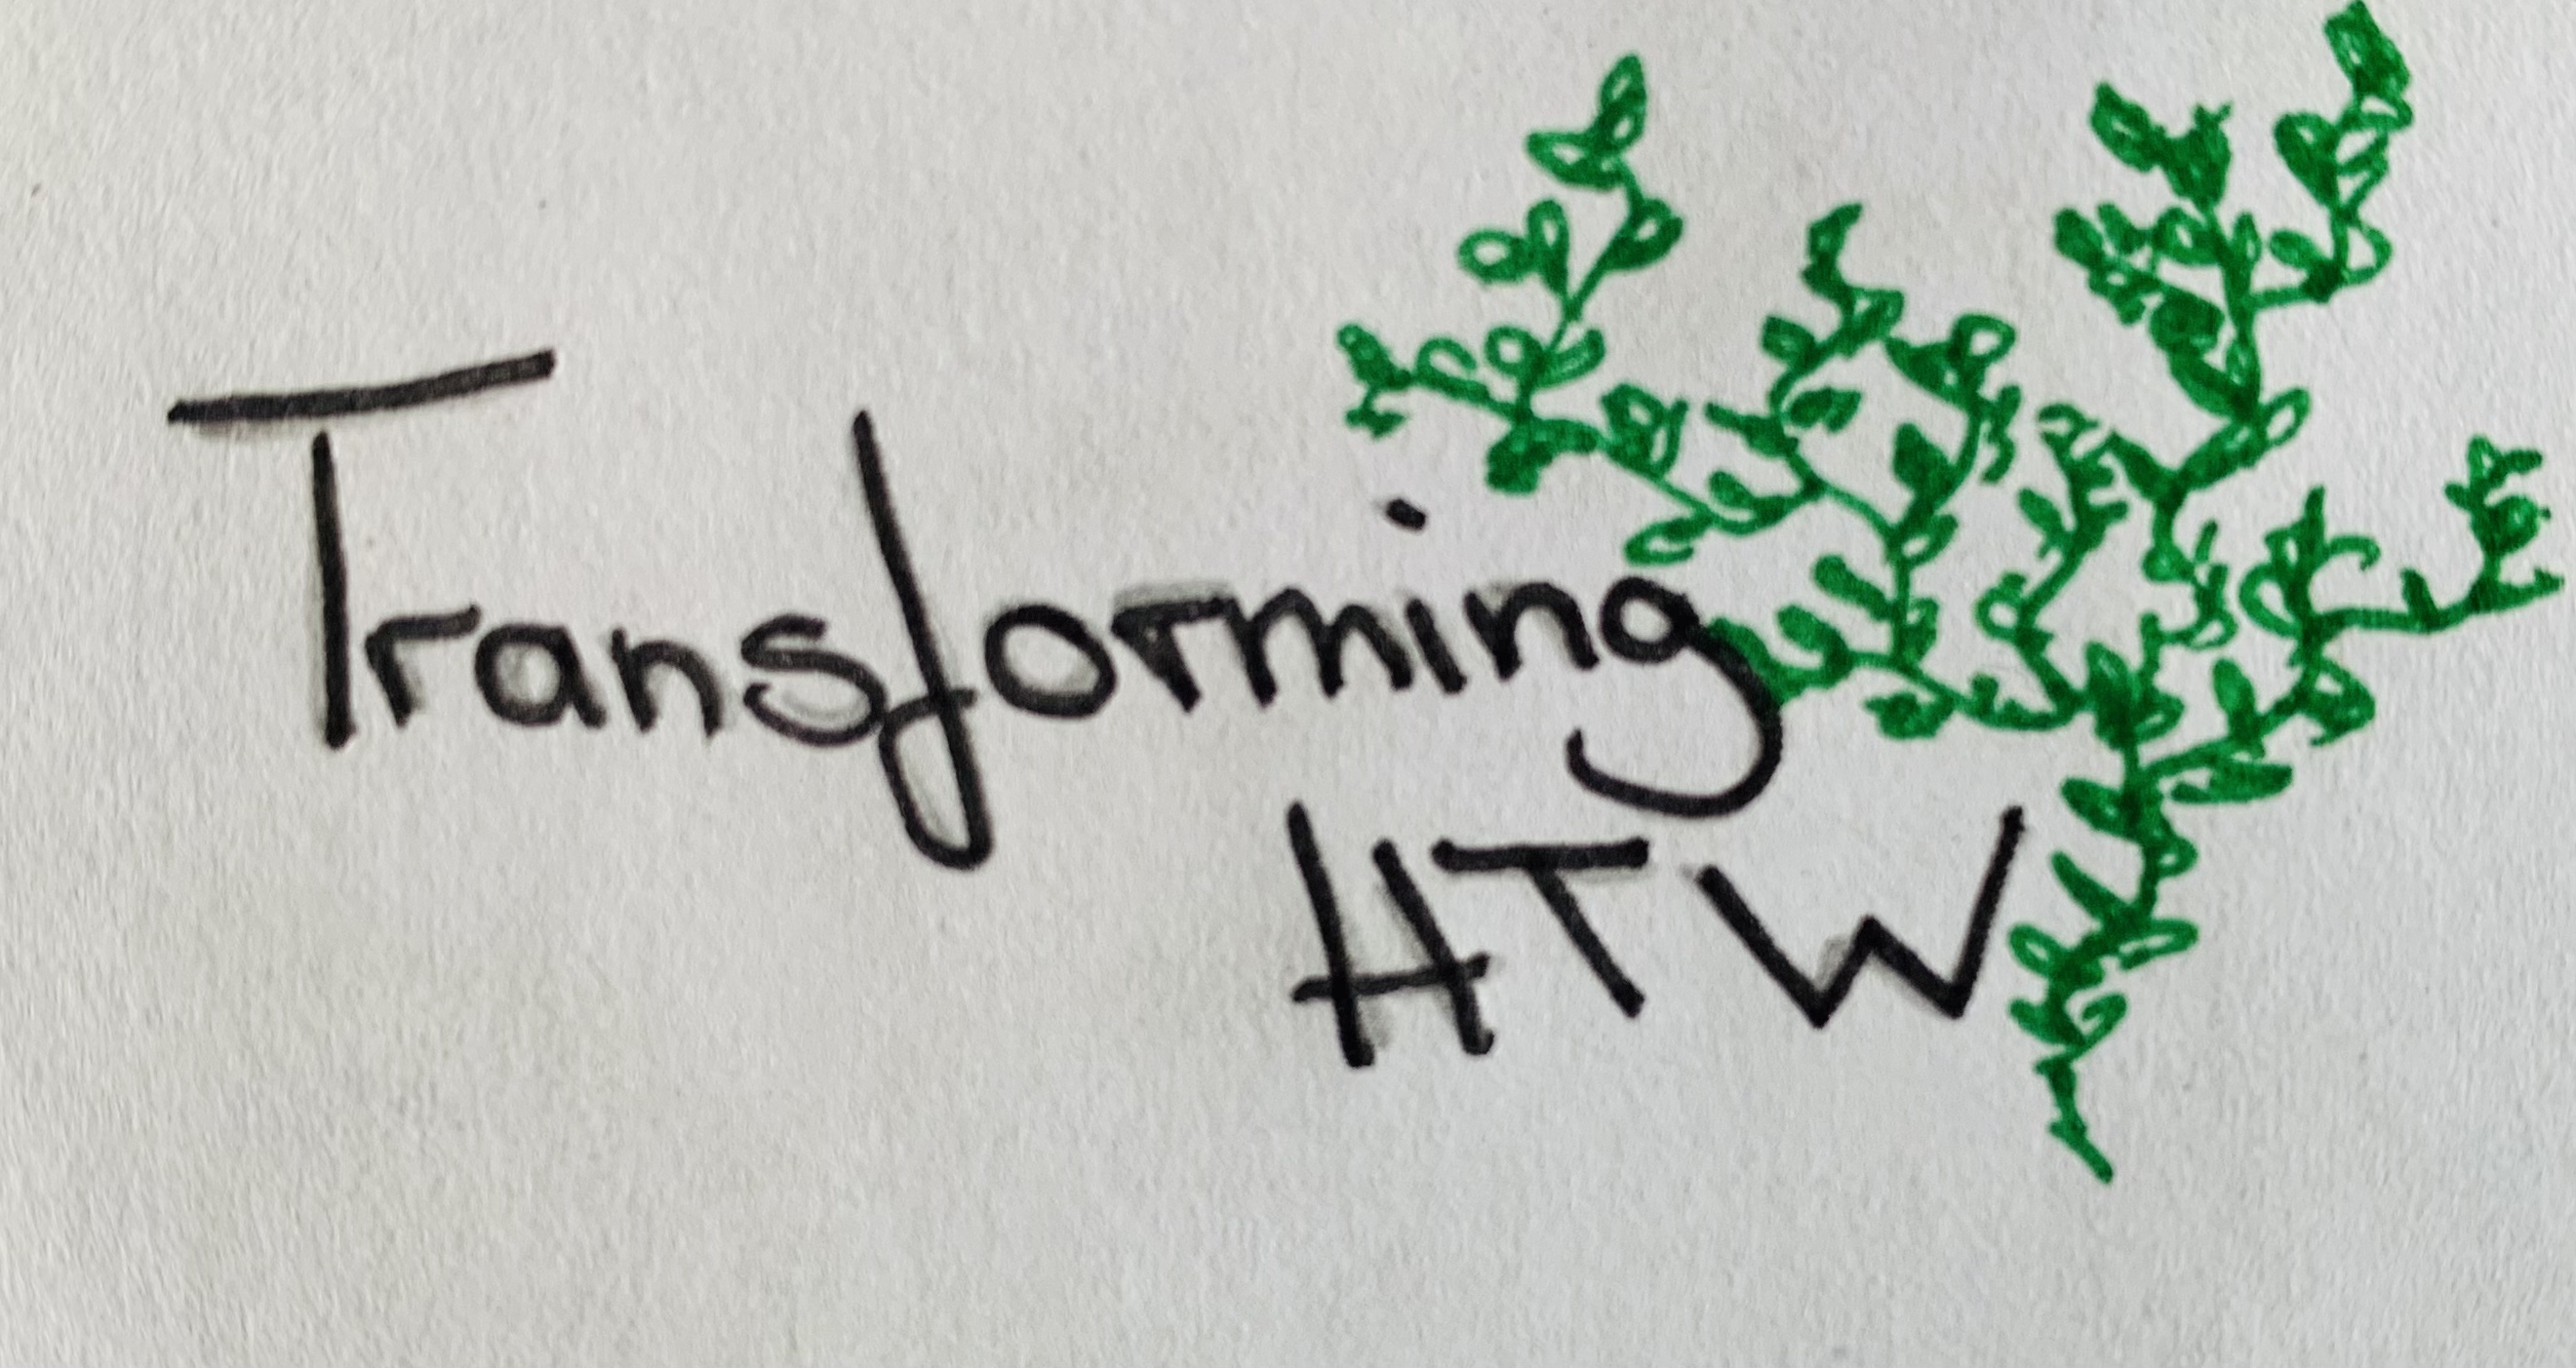 Transforming
HTW